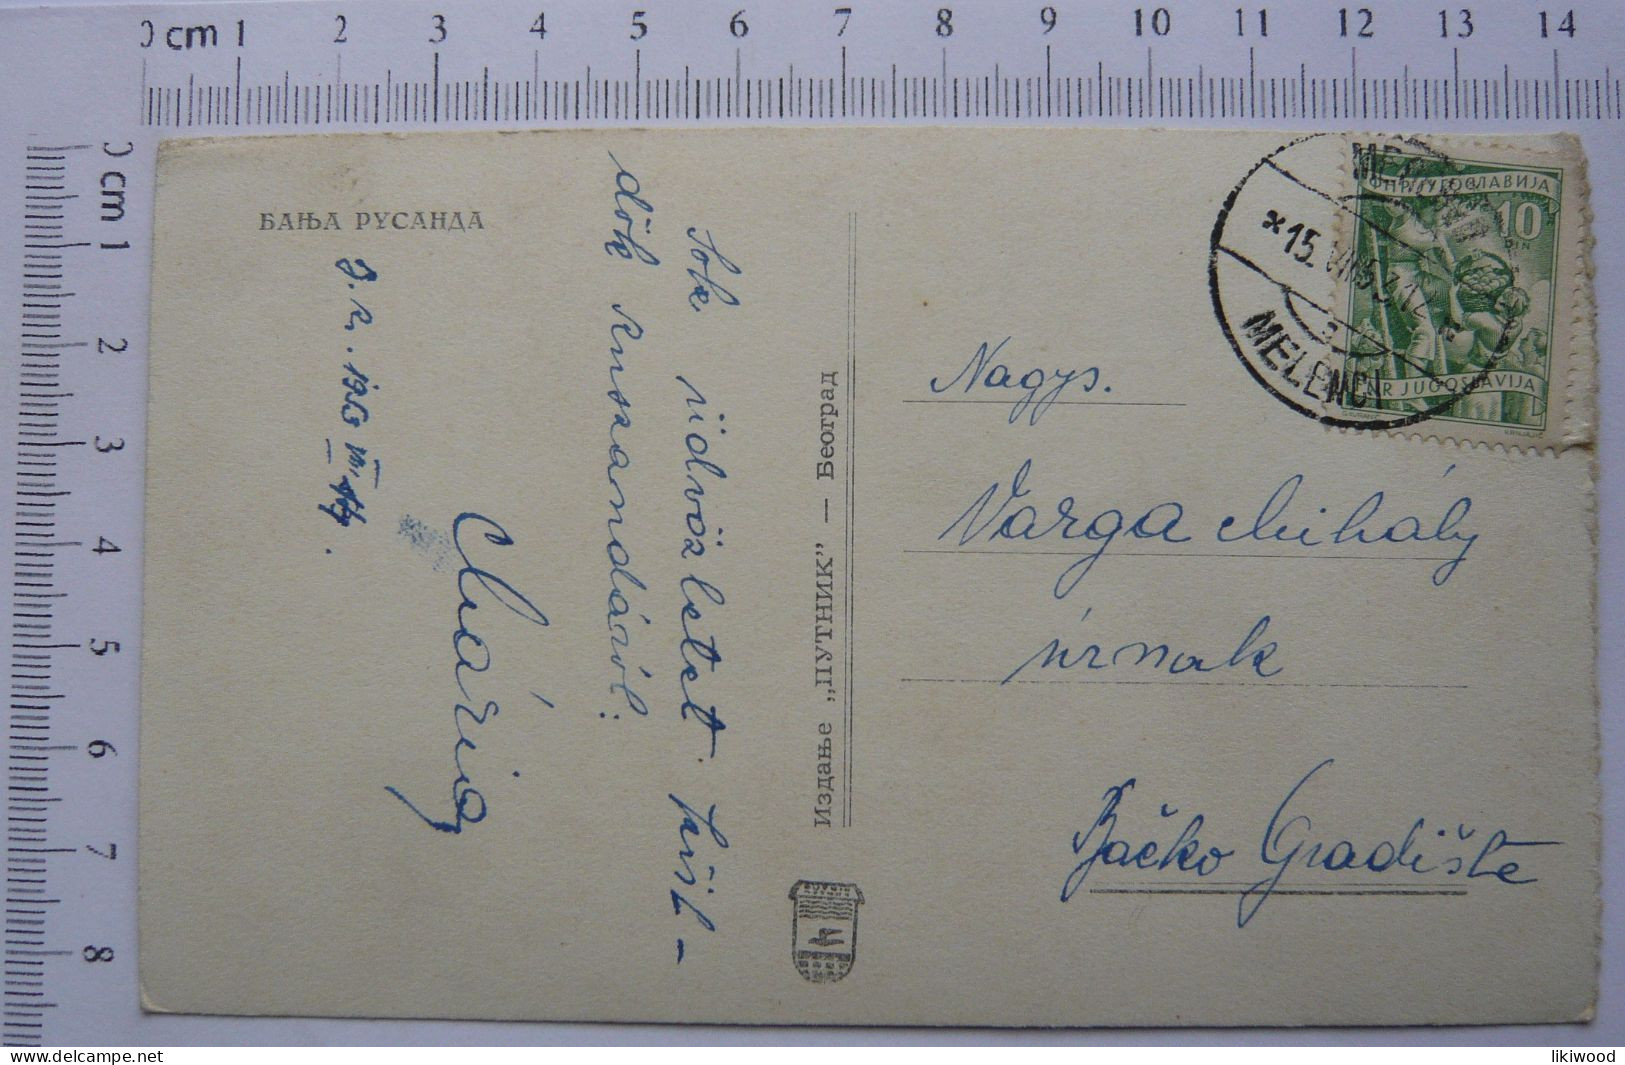 0 cm 1 2 3 4 5 6 7 8 9 10 11 12 13 14
0 cm 1 2 3 4 5 6 7 8
БАЊА РУСАНДА
1953 VIII. 14.
Sok üdvözletet kül-
dök Ruszandáról:
Mária
Издање „ПУТНИК” — Београд
MELENCI
15. VIII 53. 12
ФНР ЈУГОСЛАВИЈА
10
DIN
FNR JUGOSLAVIJA
Nagys.
Varga Mihály
úrnak
Bačko Gradište
likiwood